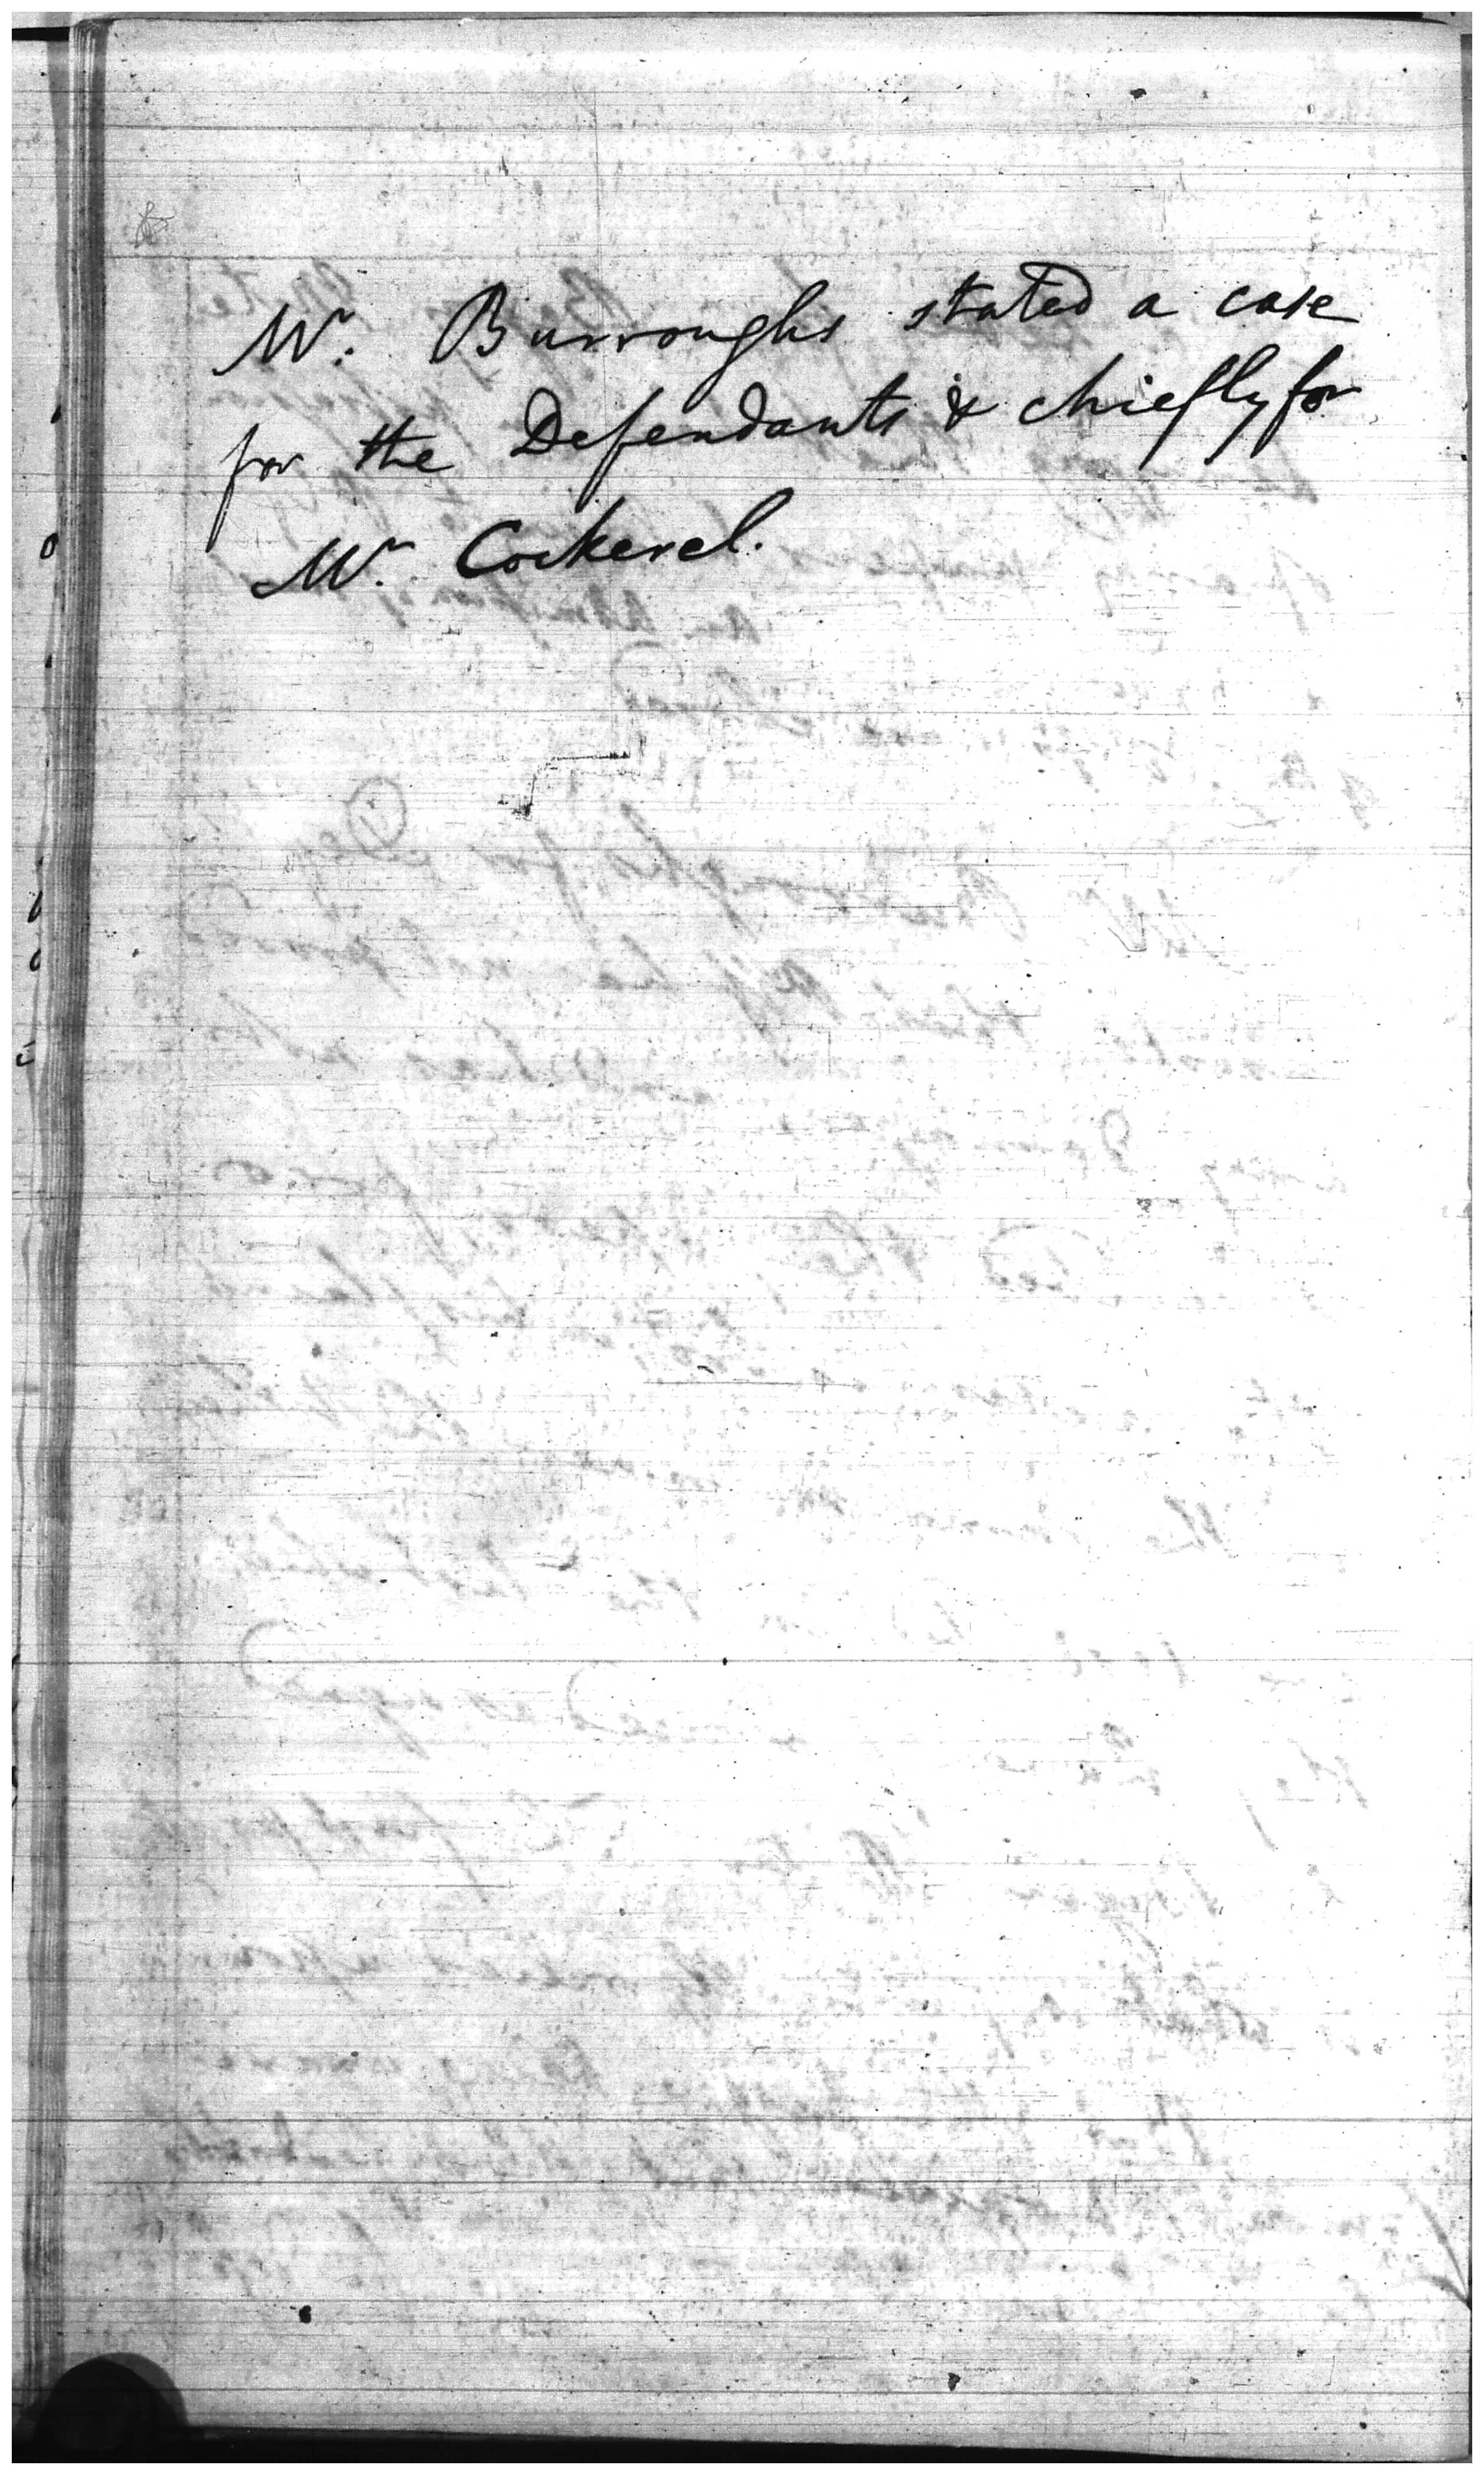 Mr. Burroughs stated a case
for the Defendants & chiefly for
Mr. Cockerel.